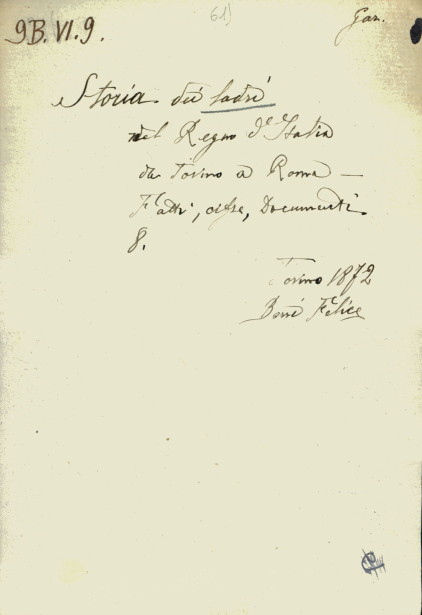 61)
9B. VI. 9.
Gar.
Storia dei ladri
nel Regno d'Italia
da Torino a Roma —
Fatti, cifre, Documenti
8.
Torino 1872
Borri Felice